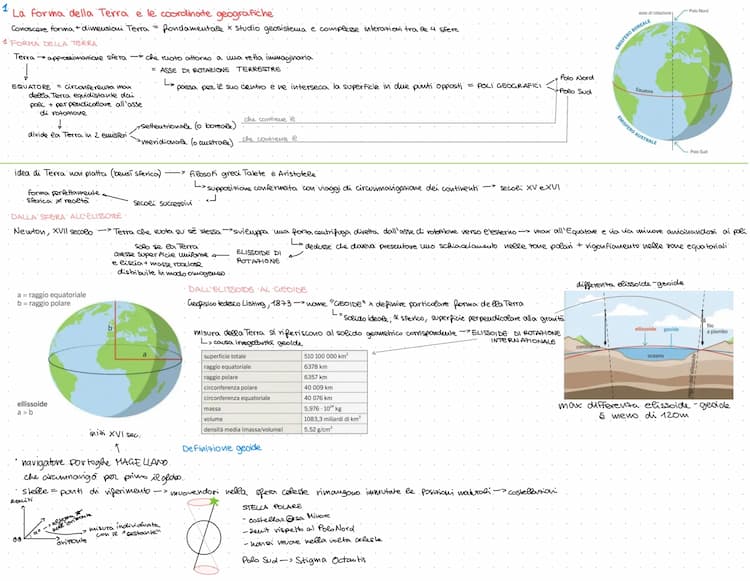 1 La forma della Terra e le coordinate geografiche
Conoscere forma + dimensioni Terra = fondamentale x studio geosistema e complesse interazioni tra le 4 sfere
FORMA DELLA TERRA
Terra → approssimazione sfera → che ruota attorno a una retta immaginaria
= ASSE DI ROTAZIONE TERRESTRE
passa per il suo centro e ne interseca la superficie in due punti opposti = POLI GEOGRAFICI
Polo Nord
Polo Sud
EQUATORE = circonferenza max
della Terra equidistante dai
poli + perpendicolare all'asse
di rotazione
divide la Terra in 2 emisferi
settentrionale (o boreale)
che contiene il
meridionale (o australe)
che contiene il
asse di rotazione
Polo Nord
EMISFERO BOREALE
Equatore
EMISFERO AUSTRALE
Polo Sud
idea di Terra non piatta (bensì sferica) → filosofi greci Talete e Aristotele
supposizione confermata con viaggi di circumnavigazione dei continenti → secoli XV e XVI
forma perfettamente
sferica ≠ realtà
secoli successivi
DALLA SFERA ALL'ELISSOIDE
Newton, XVII secolo → Terra che ruota su sé stessa → sviluppa una forza centrifuga diretta dall'asse di rotazione verso l'esterno → max all'Equatore e via via minore avvicinandosi ai poli
dedusse che doveva presentare uno schiacciamento nelle zone polari + rigonfiamento nelle zone equatoriali
solo se la Terra
avesse superficie uniforme
e liscia + masse rocciose
distribuite in modo omogeneo
ELISSOIDE DI
ROTAZIONE
DALL'ELISSOIDE AL GEOIDE
Geofisico tedesco Listing, 1873 → nome "GEOIDE" x definire particolare forma della Terra
solido ideale, ≠ sferico, superficie perpendicolare alla gravità
misura della Terra si riferiscono al solido geometrico corrispondente → ELISSOIDE DI ROTAZIONE
INTERNAZIONALE
causa irregolarità geoide
a = raggio equatoriale
b = raggio polare
b
a
ellissoide
a > b
superficie totale 510 100 000 km²
raggio equatoriale 6378 km
raggio polare 6357 km
circonferenza polare 40 009 km
circonferenza equatoriale 40 076 km
massa 5,976 · 10²⁴ kg
volume 1083,3 miliardi di km³
densità media (massa/volume) 5,52 g/cm³
differenza elissoide-geoide
ellissoide
geoide
filo
a piombo
continente
oceano
max differenza elissoide - geoide
è meno di 120m
Definizione geoide
inizi XVI sec.
navigatore portoghe MAGELLANO
che circumnavigò per primo il globo
stelle = punti di riferimento → muovendosi nella sfera celeste rimangono immutate le posizioni naturali → costellazioni
orizzonte
misura individuante
con il "sestante"
STELLA POLARE
- costellaz Orsa Minore
- zenit rispetto al Polo Nord
- non si muove nella volta celeste
Polo Sud → Stigma Octantis